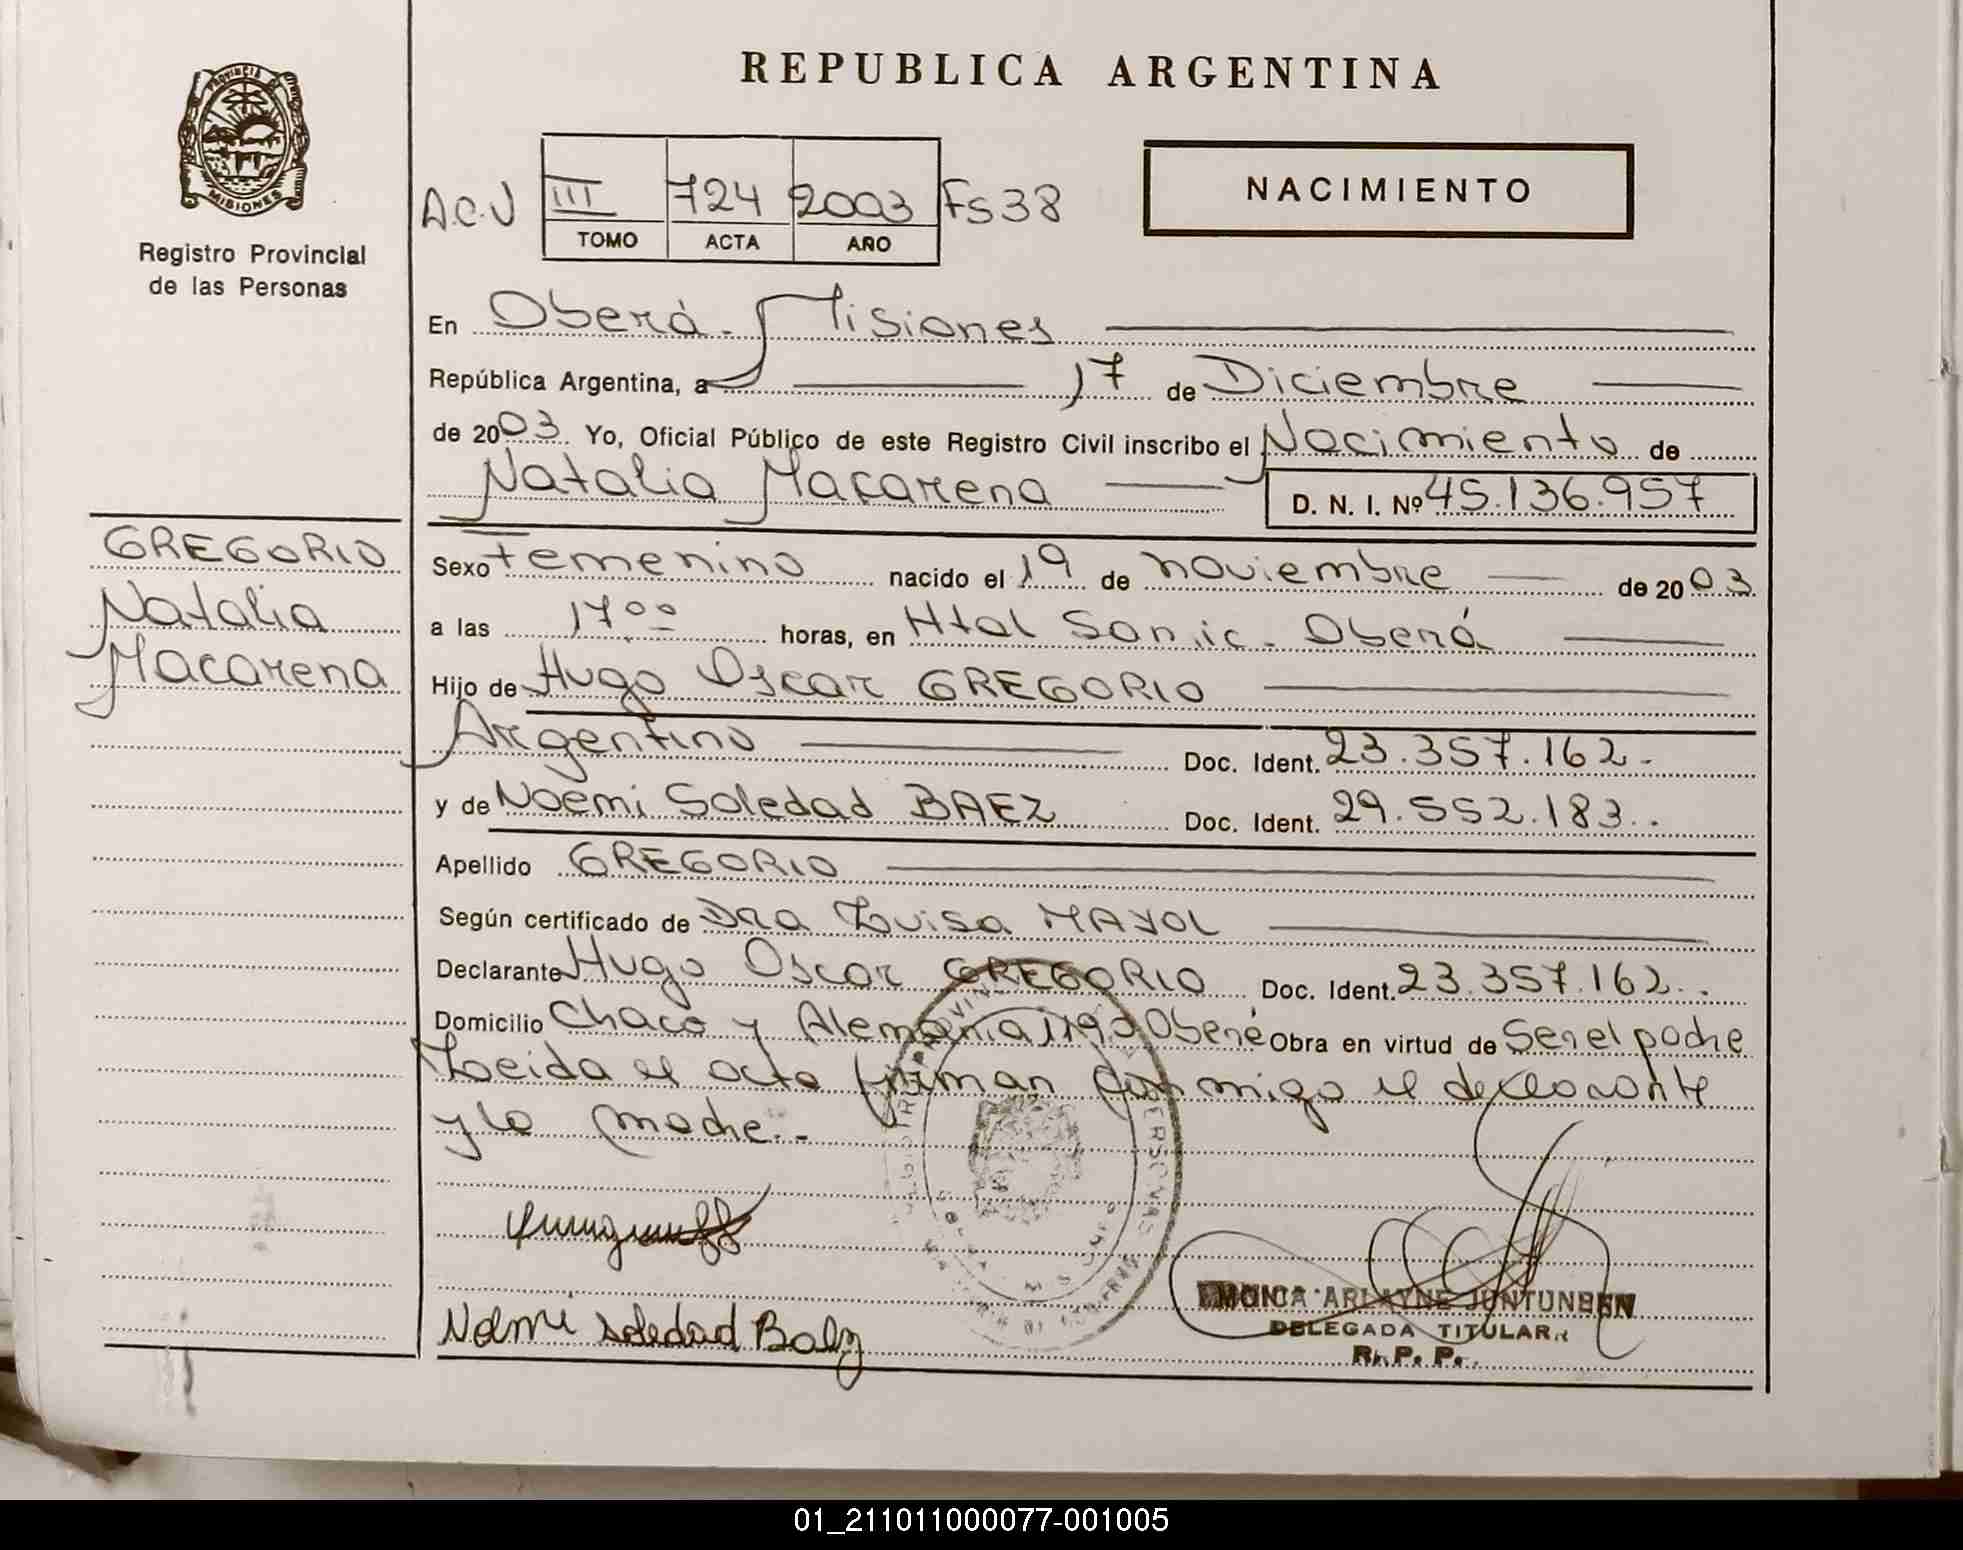 REPUBLICA ARGENTINA
PROVINCIA DE
MISIONES
Registro Provincial
de las Personas
NACIMIENTO
A.C.V III 724 2003 Fs 38
TOMO ACTA AÑO
En Oberá - Misiones
República Argentina, a 17 de Diciembre
de 2003. Yo, Oficial Público de este Registro Civil inscribo el Nacimiento de
Natalia Macarena D. N. I. Nº 45.136.957
GREGORIO
Natalia
Macarena
Sexo Femenino nacido el 19 de noviembre de 2003
a las 17 00 horas, en Htal Sam.ic - Oberá
Hijo de Hugo Oscar GREGORIO
Argentino Doc. Ident. 23.357.162.
y de Noemi Soledad BAEZ Doc. Ident. 29.552.183.
Apellido GREGORIO
Según certificado de Dra Luisa MAYOL
Declarante Hugo Oscar GREGORIO Doc. Ident. 23.357.162.
Domicilio Chaco y Alemania Oberá Obra en virtud de Ser el padre
Leida el acta firman conmigo el declarante
y la madre.-
Noemi Soledad Baez
MONICA ARLAYNE JUNTUNEN
DELEGADA TITULAR
R. P. P.
01_211011000077-001005